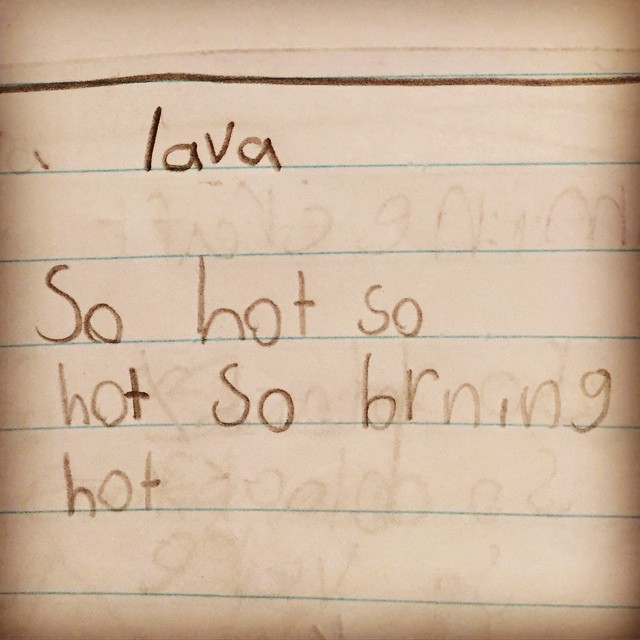 lava
So hot so
hot So brning
hot